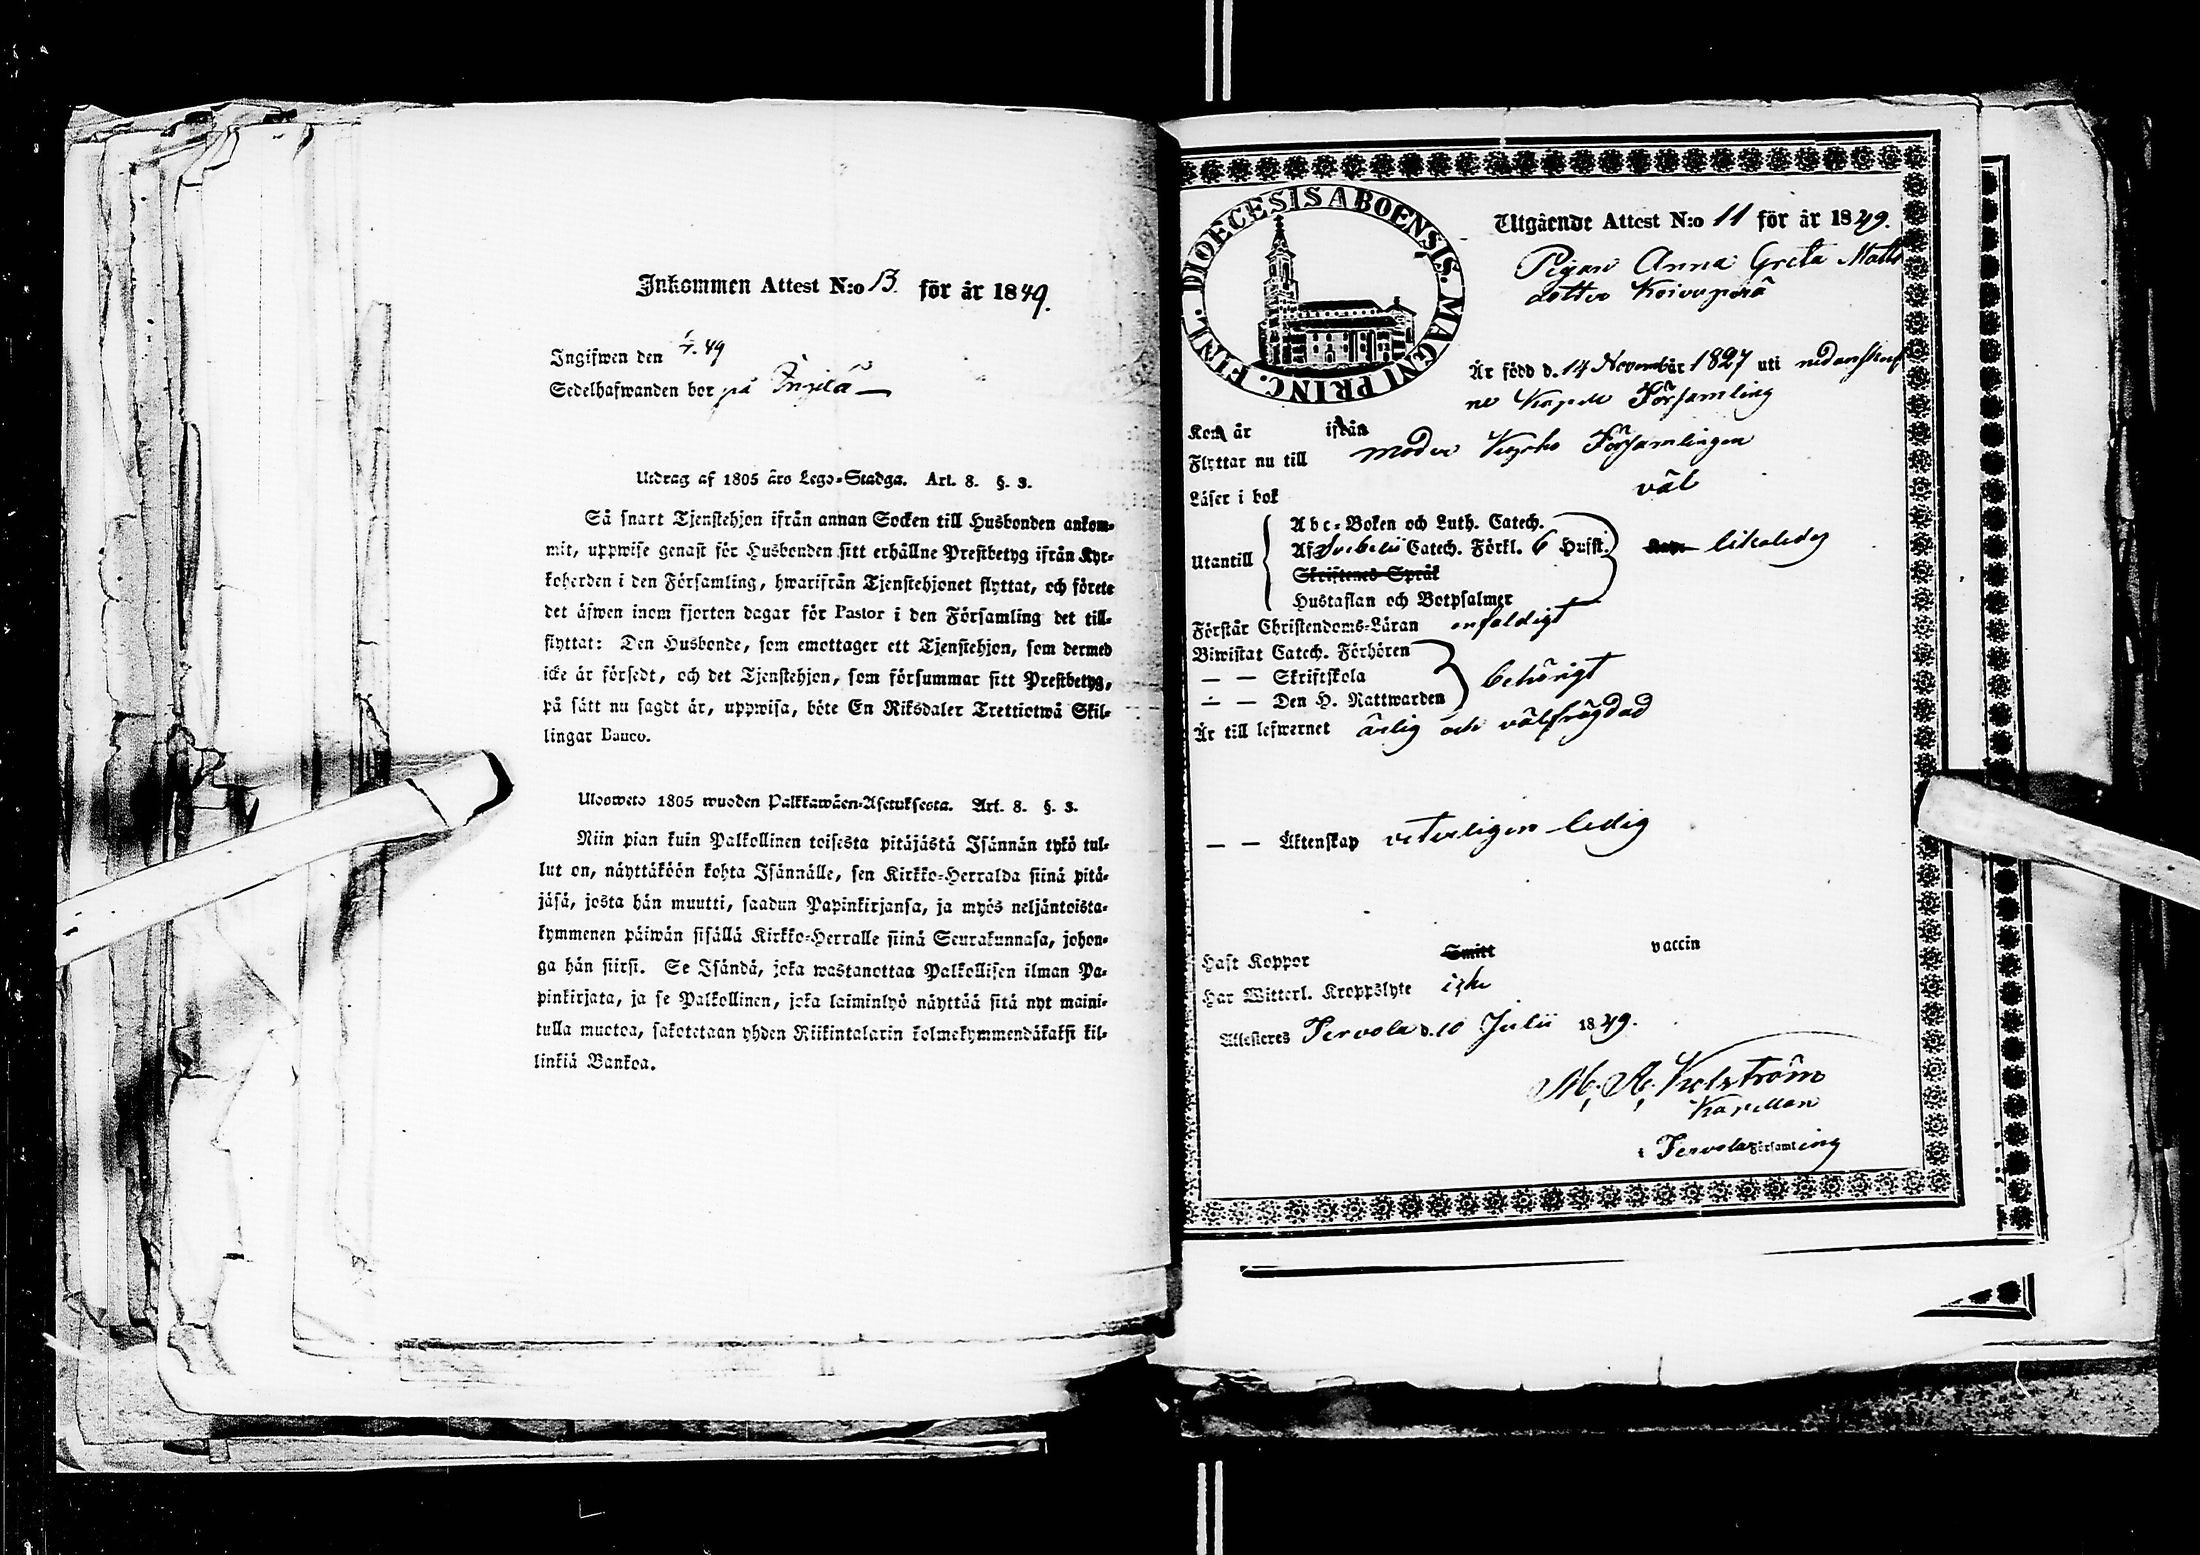 Inkommen Attest N:o 13. för år 1849.
Ingifwen den 49
Sedelhafwanden bor på
Utdrag af 1805 års Lego-Stadga. Art. 8. §. 3.
Så snart Tjenstehjon ifrån annan Socken till Husbonden ankom-
mit, uppwise genast för Husbonden sitt erhållne Prestbetyg ifrån Kyr-
koherden i den Församling, hwarifrån Tjenstehjonet flyttat, och förete
det äfwen inom fjorton dagar för Pastor i den Församling det till-
flyttat: Den Husbonde, som emottager ett Tjenstehjon, som dermed
icke är försedt, och det Tjenstehjon, som försummar sitt Prestbetyg,
på sätt nu sagdt är, uppwisa, böte En Riksdaler Trettiotwå Skil-
lingar Banco.
Ulosweto 1805 wuoden Palkkawäen-Asetuksesta. Art. 8. §. 3.
Niin pian kuin Palkollinen toisesta pitäjästä Isännän tykö tul-
lut on, näyttäköön kohta Isännälle, sen Kirkko-Herralda siinä pitä-
jäsä, josta hän muutti, saadun Papinkirjansa, ja myös neljäntoista-
kymmenen päiwän sisällä Kirkko-Herralle siinä Seurakunnasa, johon-
ga hän siirsi. Se Isändä, joka wastanottaa Palkollisen ilman Pa-
pinkirjata, ja se Palkollinen, joka laiminlyö näyttää sitä nyt maini-
tulla muotoa, sakotetaan yhden Riikintalarin kolmekymmendäkaksi kil-
linkiä Bankoa.
DIOECESIS ABOENSIS. MAGNI PRINC. FINL.
Utgående Attest N:o 11 för år 1849.
Pigan Anna Greta Matts
dotter Koivuperä
Är född d. 14 November 1827 uti nedanskref
ne Kapell Församling
Kom år ifrån
Flyttar nu till moder Kyrko Församlingen
Läser i bok väl
Utantill
Abc-Boken och Luth. Catech.
Af Svebelii Catech. Förkl. 6 Hufst. likaledes
Skriftenes Språk
Hustaflan och Botpsalmer
Förstår Christendoms-Läran enfaldigt
Biwistat Catech. Förhören
— — Skriftskola behörigt
— — Den H. Nattwarden
Är till lefwernet ärlig och välfrägdad
— — Äktenskap veterligen ledig
Haft Koppor Smitt vaccin
Har Witterl. Kroppslyte icke
Attesteres Tervola d. 10 Julii 1849.
Kapellan
i Tervola Församling